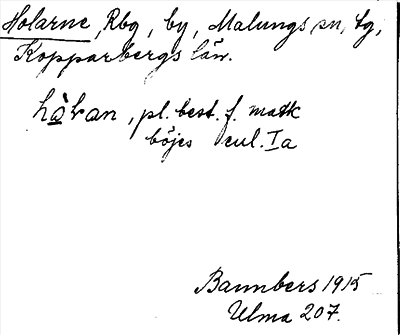 Holarne, Rbg, by, Malungs sn, tg,
Kopparbergs län.
hò̱ḷan, pl. best. f. mask
böjes enl. Ia
Bannbers 1915
Ulma 207.